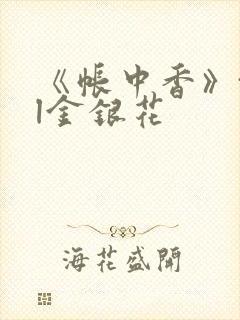 《帐中香》
l金银花
海花盛開